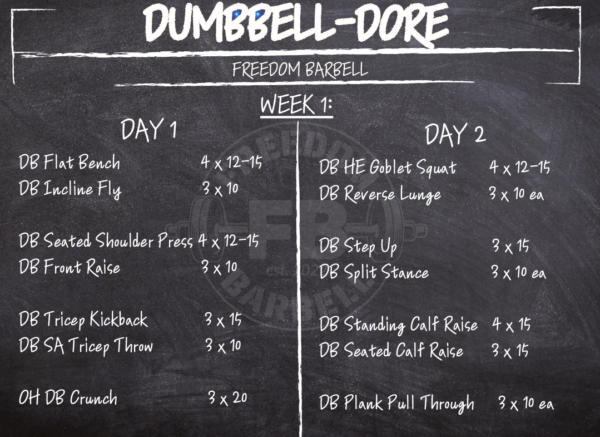 DUMBBELL-DORE
FREEDOM BARBELL
WEEK 1:
DAY 1
DB Flat Bench 4 x 12-15
DB Incline Fly 3 x 10
DB Seated Shoulder Press 4 x 12-15
DB Front Raise 3 x 10
DB Tricep Kickback 3 x 15
DB SA Tricep Throw 3 x 10
OH DB Crunch 3 x 20
DAY 2
DB HE Goblet Squat 4 x 12-15
DB Reverse Lunge 3 x 10 ea
DB Step Up 3 x 15
DB Split Stance 3 x 10 ea
DB Standing Calf Raise 4 x 15
DB Seated Calf Raise 3 x 15
DB Plank Pull Through 3 x 10 ea
FREEDOM
FB
BARBELL